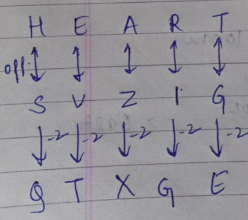 H E A R T
opp.
S V Z I G
-2 -2 -2 -2 -2
Q T X G E